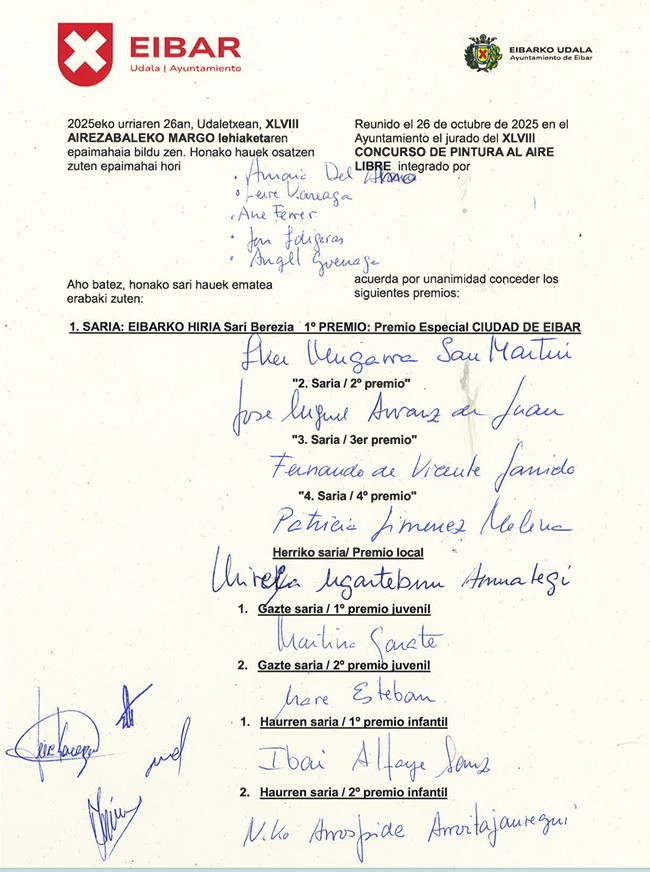 EIBAR
Udala | Ayuntamiento
EIBARKO UDALA
Ayuntamiento de Eibar
2025eko urriaren 26an, Udaletxean, XLVIII
AIREZABALEKO MARGO lehiaketaren
epaimahaia bildu zen. Honako hauek osatzen
zuten epaimahai hori
Reunido el 26 de octubre de 2025 en el
Ayuntamiento el jurado del XLVIII
CONCURSO DE PINTURA AL AIRE
LIBRE integrado por
· Amaia Del
· Leire
· Ane Ferrer
· Jon
· Angel
Aho batez, honako sari hauek ematea
erabaki zuten:
acuerda por unanimidad conceder los
siguientes premios:
1. SARIA: EIBARKO HIRIA Sari Berezia 1º PREMIO: Premio Especial CIUDAD DE EIBAR
San Martin
"2. Saria / 2º premio"
Jose Miguel Arranz de Juan
"3. Saria / 3er premio"
Fernando de Vicente Garrido
"4. Saria / 4º premio"
Patricia Jimenez Molina
Herriko saria/ Premio local
1. Gazte saria / 1º premio juvenil
Martina Garate
2. Gazte saria / 2º premio juvenil
Esteban
1. Haurren saria / 1º premio infantil
Ibai Alfaye Sanz
2. Haurren saria / 2º premio infantil
Niko Arrospide Arroitajauregui